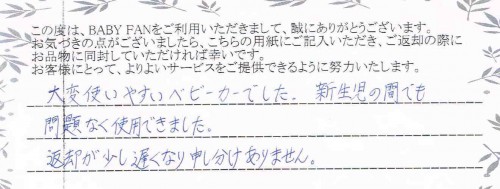 この度は、BABY FANをご利用いただきまして、誠にありがとうございます。
お気づきの点がございましたら、こちらの用紙にご記入いただき、ご返却の際に
お品物に同封していただければ幸いです。
お客様にとって、よりよいサービスをご提供できるように努力いたします。
大変使いやすいベビーカーでした。新生児の間でも
問題なく使用できました。
返却が少し遅くなり申し分けありません。